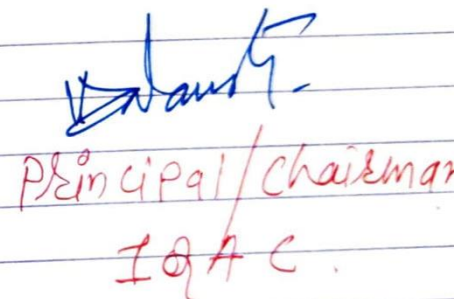 Principal/Chairman
IQAC